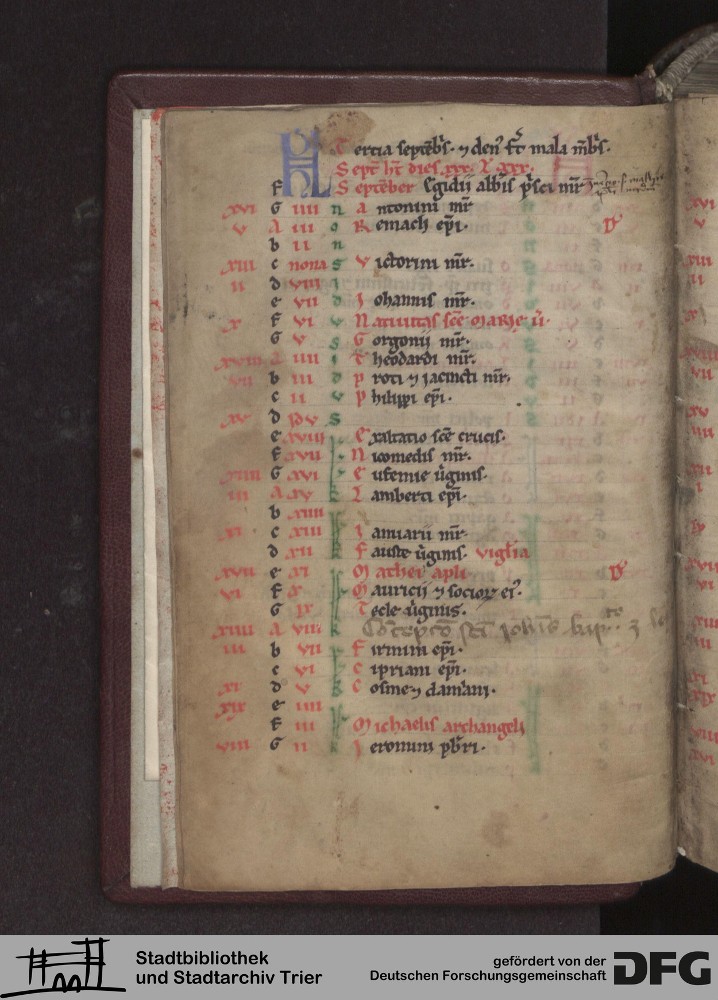 KL Tercia septēbs. ⁊ den' fꝯt mala mēbs.
Sept̄ ht̄ dies. xxx. L. xxx.
F Septēber Egidii abbis psci mr̄
xvi G iiii n Antonini mr̄
v A iii o Remacli ep̄i.
b ii n
xiii c nona s Victorini mr̄.
ii d viii i
e vii d Iohannis mr̄.
x F vi v Natiuitas sc̄e Marie ū.
G v s Gorgonii mr̄.
xviii A iiii i Theodardi mr̄.
vii b iii d Proti ⁊ iacincti mr̄.
c ii v Philippi ep̄i.
xv d idv s
e xviii Exaltatio sc̄e crucis.
F xvii Nicomedis mr̄.
xiiii G xvi Eufemie ūginis.
iii A xv k Lamberti ep̄i.
b xiiii
xi c xiii Ianuarii mr̄.
d xii k Fauste ūginis. Vigilia
xvii e xi Mathei apli
vi F x Mauricii ⁊ socioꝝ ei'.
G ix Tecle ūginis.
xiiii A viii k Cōcepcō sc̄i Joh̄is
iii b vii Firmini ep̄i.
c vi Cipriani ep̄i.
xi d v k Cosme ⁊ damiani.
xix e iiii
F iii Michaelis archangeli
viii G ii k Ieronimi pb̄ri.
Stadtbibliothek
und Stadtarchiv Trier
gefördert von der
Deutschen Forschungsgemeinschaft
DFG